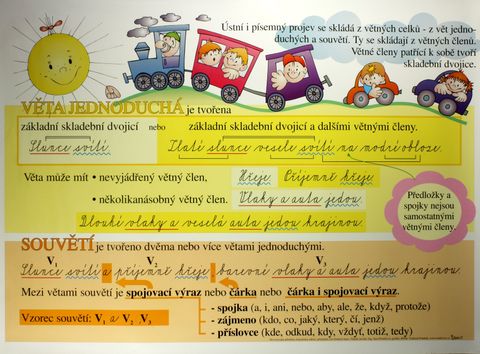 Ústní i písemný projev se skládá z větných celků - z vět jedno-
duchých a souvětí. Ty se skládají z větných členů.
Větné členy patřící k sobě tvoří
skladební dvojice.
VĚTA JEDNODUCHÁ je tvořena
základní skladební dvojicí nebo základní skladební dvojicí a dalšími větnými členy.
Slunce svítí. Zlaté slunce vesele svítí na modré obloze.
Věta může mít • nevyjádřený větný člen, Hřeje. Příjemně hřeje.
• několikanásobný větný člen. Vlaky a auta jedou.
Dlouhé vlaky a veselá auta jedou krajinou.
Předložky a
spojky nejsou
samostatnými
větnými členy.
SOUVĚTÍ je tvořeno dvěma nebo více větami jednoduchými.
V1 V2 V3
Slunce svítí a příjemně hřeje, barevné vlaky a auta jedou krajinou.
Mezi větami souvětí je spojovací výraz nebo čárka nebo čárka i spojovací výraz.
- spojka (a, i, ani, nebo, aby, ale, že, když, protože)
Vzorec souvětí: V1 a V2, V3
- zájmeno (kdo, co, jaký, který, čí, jenž)
- příslovce (kde, odkud, kdy, vždyť, totiž, tedy)